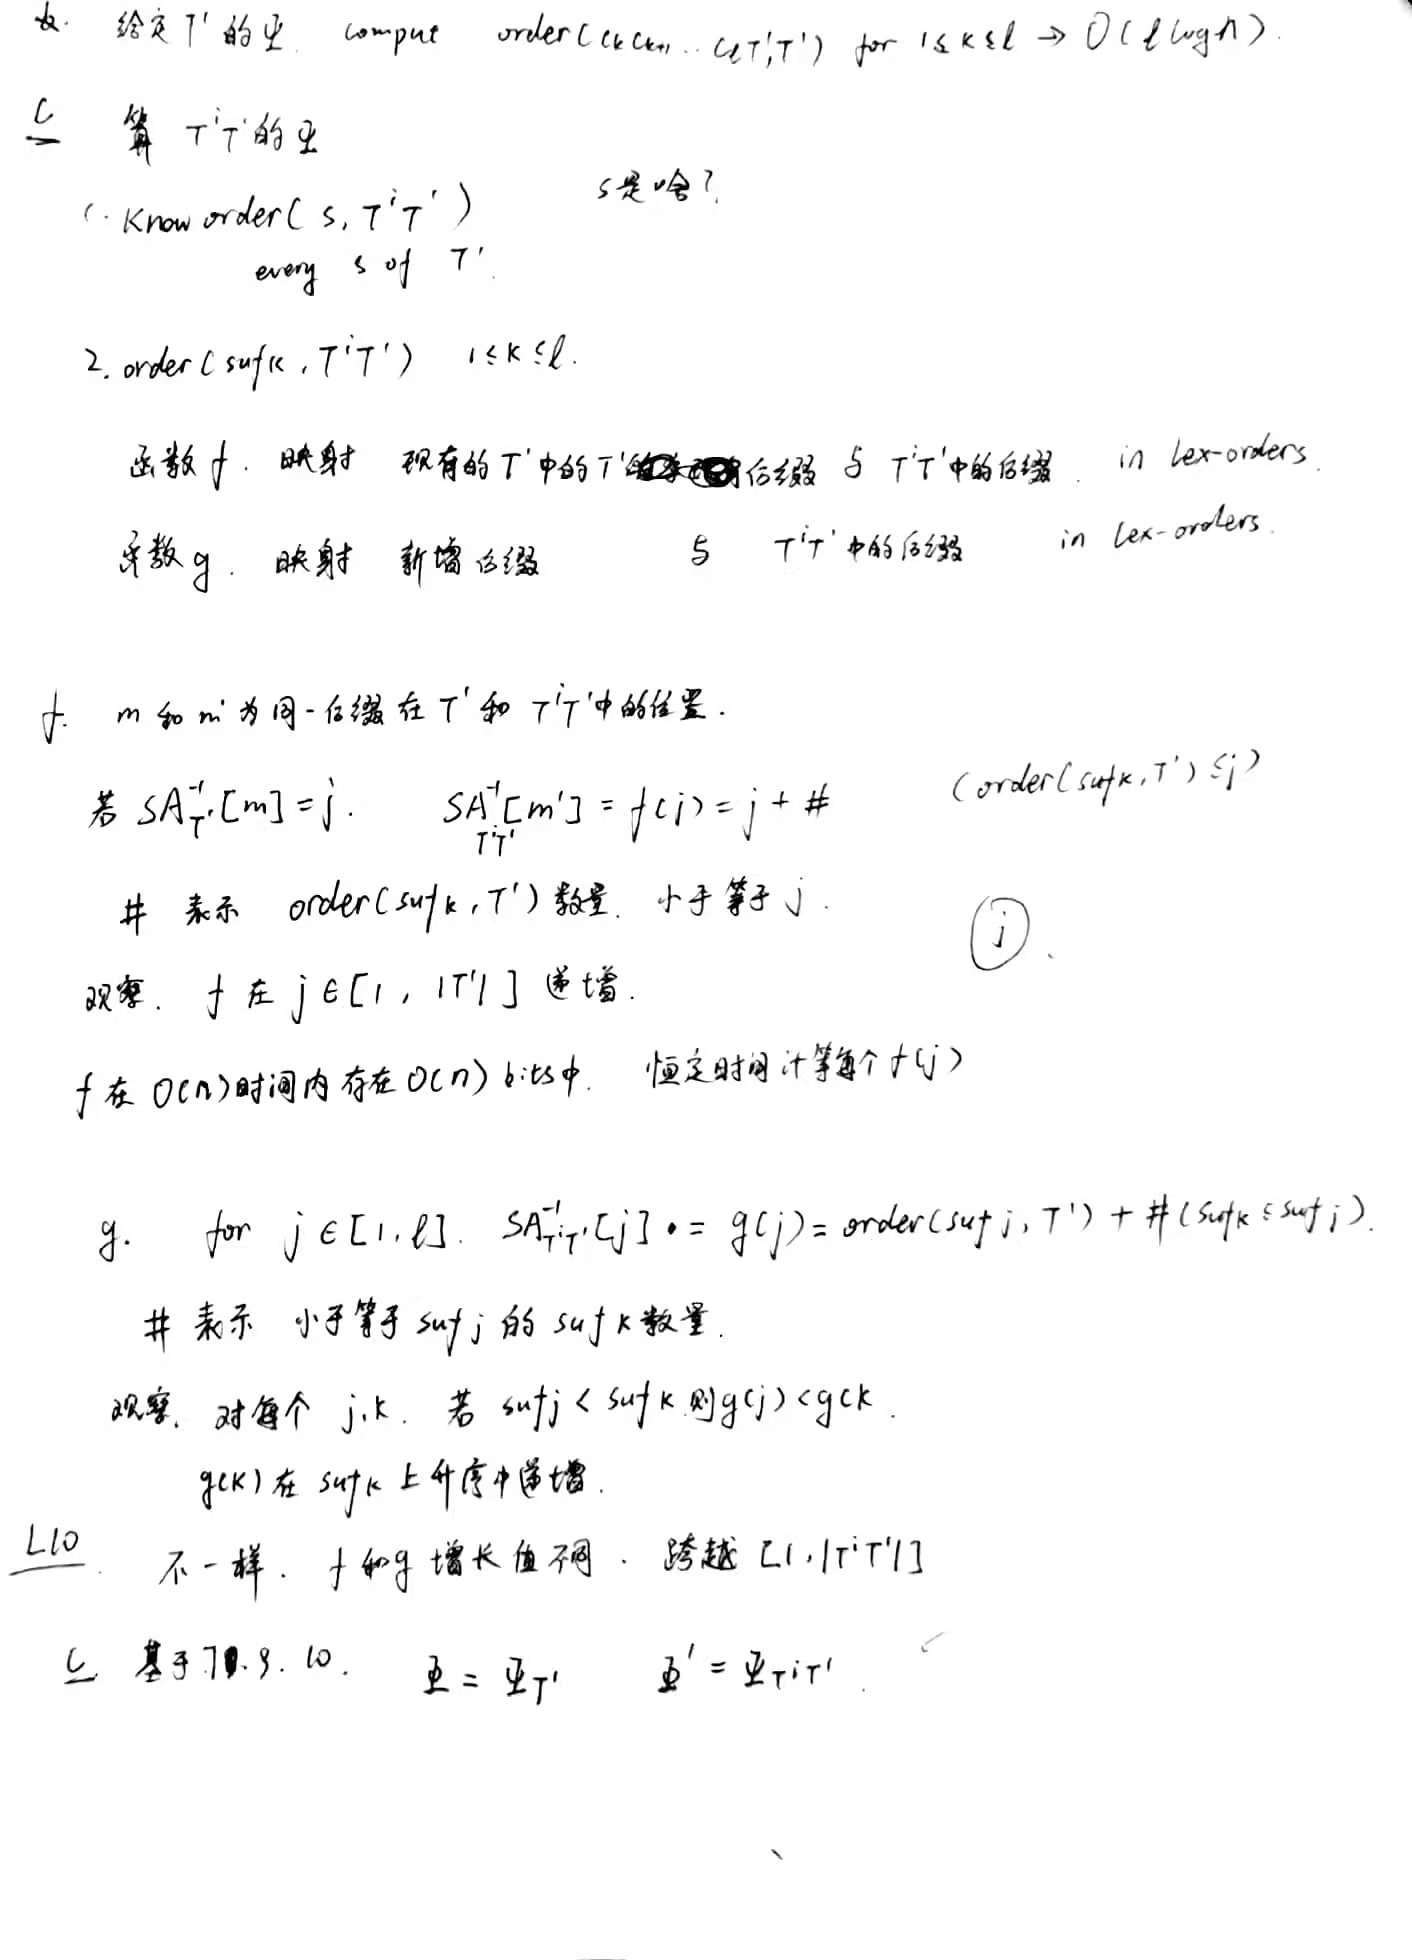 b. 给定T'的Ψ. comput order(CkCk+1..ClT',T') for 1≤k≤l → O(l log n).
C 算 TⁱT'的Ψ
1. Know order(s, TⁱT') s是啥?
every s of T'.
2. order(sufk, TⁱT') 1≤k≤l.
函数f. 映射 现有的T'中的T' 后缀 与 TⁱT'中的后缀. in lex-orders.
函数g. 映射 新增后缀 与 TⁱT'中的后缀 in lex-orders.
f. m和m'为同一后缀在T'和TⁱT'中的位置.
若 SA⁻¹T'[m]=j. SA⁻¹TⁱT'[m']=f(j)=j+# (order(sufk,T')≤j)
# 表示 order(sufk,T')数量. 小于等于j.
j.
观察. f在j∈[1,|T'|]递增.
f在O(n)时间内存在O(n) bits中. 恒定时间计算每个f(j)
g. for j∈[1,l]. SA⁻¹TⁱT'[j]·=g(j)=order(sufj,T')+#(sufk≤sufj).
# 表示 小于等于sufj的sufk数量.
观察. 对每个j.k. 若sufj<sufk.则g(j)<g(k.
g(k)在sufk上升序中递增.
L10. 不一样. f和g增长值不同. 跨越[1,|TⁱT'|]
C 基于 9. 10. Ψ=ΨT' Ψ'=ΨTⁱT'.